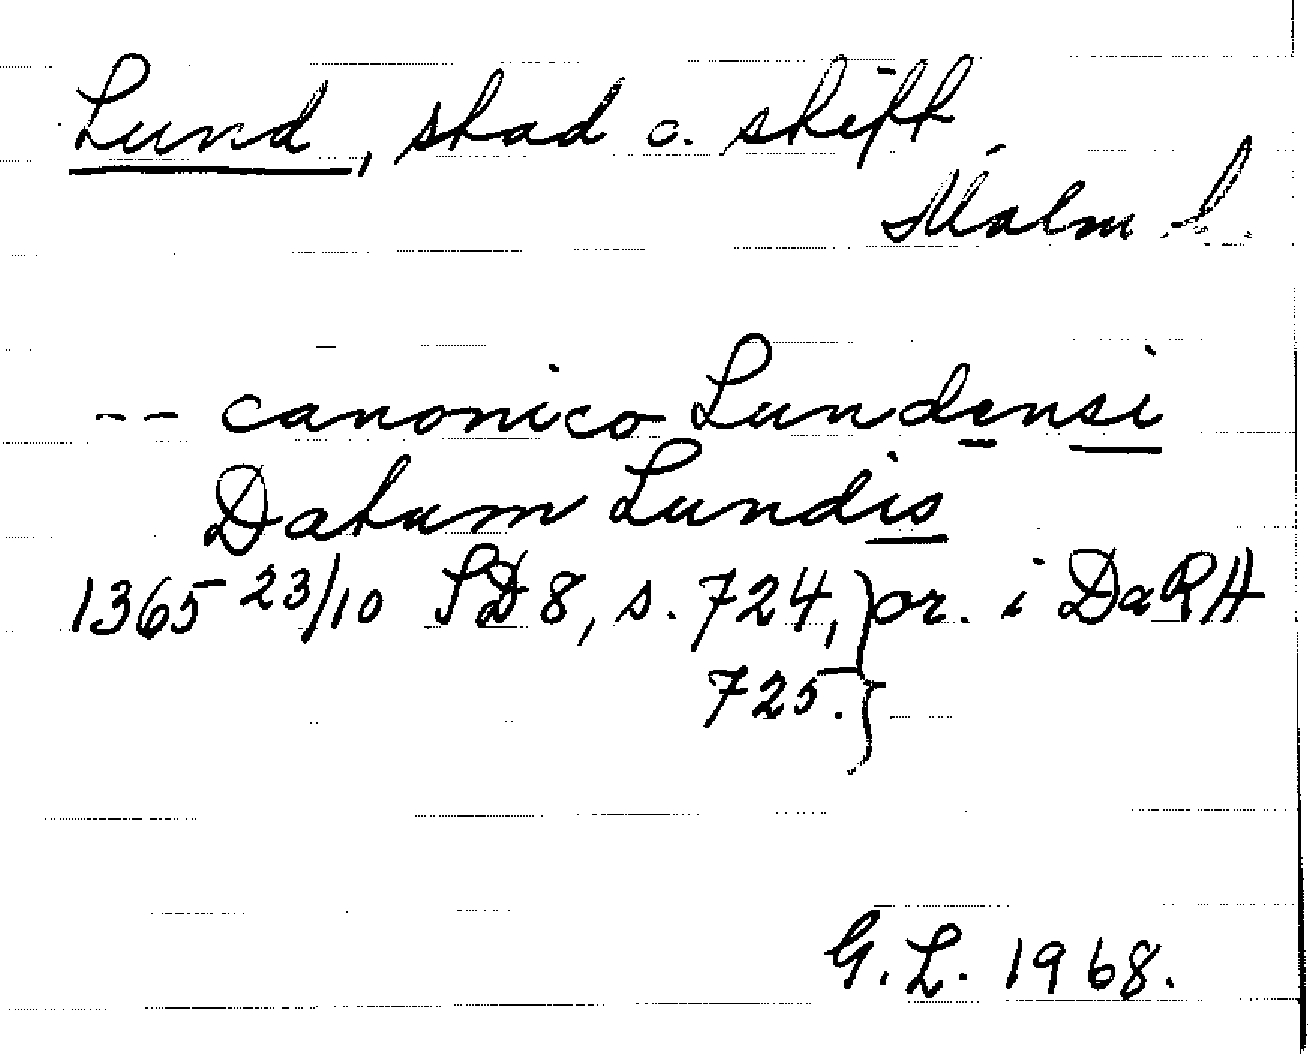 Lund, stad o. stift
Malm. l.
-- canonico Lundensi
Datum Lundis
1365 23/10 SD 8, s. 724, } or. i DaRA
725. }
G. L. 1968.